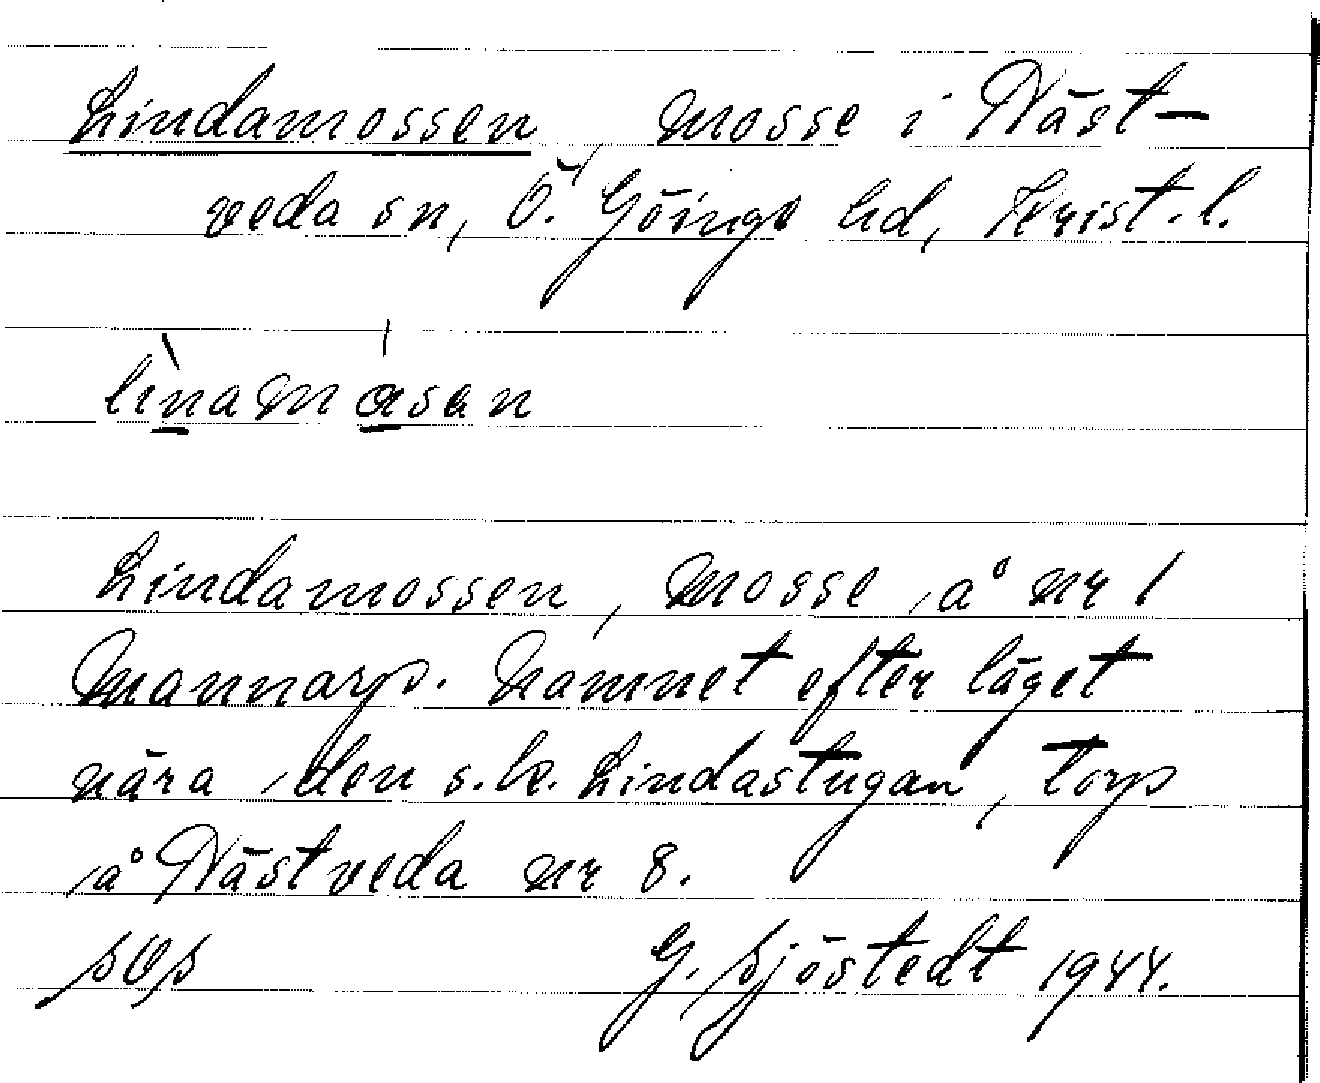 Lindamossen, mosse i Näst-
veda sn, Ö. Göinge hd, Krist. l.
linamosan
Lindamossen, mosse å nr 1
Mannarp. Namnet efter läget
nära den s.k. Lindastugan, torp
å Nästveda nr 8.
G. Sjöstedt 1944.